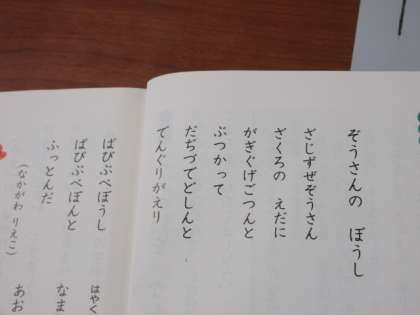 ぞうさんの ぼうし
ざじずぜぞうさん
ざくろの えだに
がぎぐげごつんと
ぶつかって
だぢづでどしんと
でんぐりがえり
ばびぶべぼうし
ぱぴぷぺぽんと
ふっとんだ
(なかがわ りえこ)
はやく
なま
あお